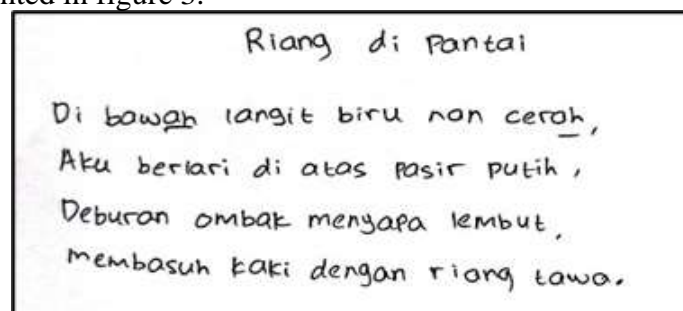 nted in figure 3.
Riang di Pantai
Di bawah langit biru nan cerah,
Aku berlari di atas pasir putih,
Deburan ombak menyapa lembut,
membasuh kaki dengan riang tawa.